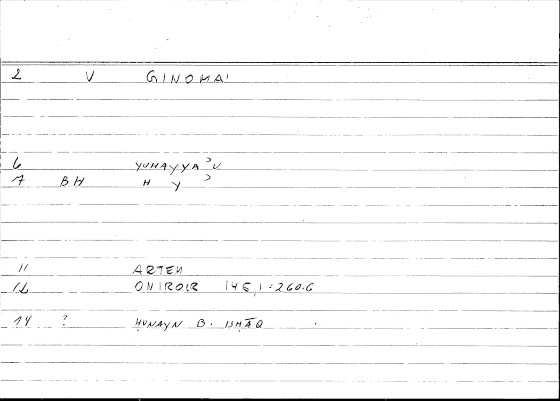 2 V GINOMAI
6 YUHAYYAʾU
7 BH H Y ʾ
11 ARTEM
12 ONIROCR 145,1 = 260.6
14 ? ḤUNAYN B. ISḤĀQ